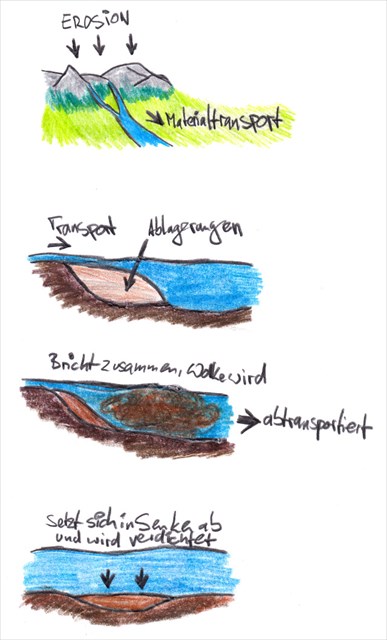 EROSION
Materialtransport
Transport
Ablagerungen
Bricht zusammen, Wolke wird
abtransportiert
Setzt sich in Senke ab
und wird verdichtet